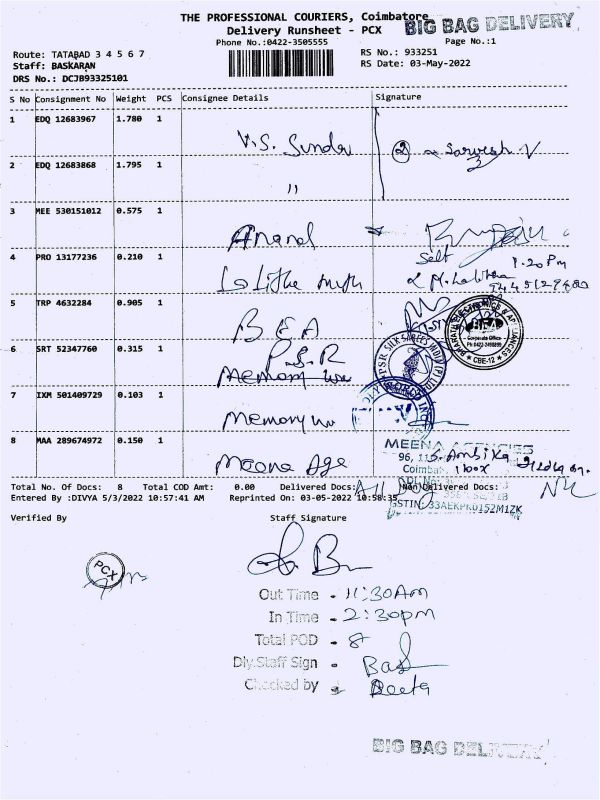 THE PROFESSIONAL COURIERS, Coimbatore
BIG BAG DELIVERY
Delivery Runsheet - PCX
Phone No.:0422-3505555
Page No.:1
Route: TATABAD 3 4 5 6 7
RS No.: 933251
Staff: BASKARAN
RS Date: 03-May-2022
DRS No.: DCJB93325101
S No Consignment No Weight PCS Consignee Details Signature
1 EDQ 12683967 1.780 1
V.S. Sunda
2
2 EDQ 12683868 1.795 1
"
3 MEE 530151012 0.575 1
Anand
4 PRO 13177236 0.210 1
Self
1.20 Pm
5 TRP 4632284 0.905 1
BEA
Corporate Office
CBE-12
6 SRT 52347760 0.315 1
P.S.R
PSR SILK SAREES INDIA (P) LTD
7 IXM 501409729 0.103 1
Memory
8 MAA 289674972 0.150 1
Meena Age
MEENA AGENCIES
S. Ambika
1 box
Total No. Of Docs: 8 Total COD Amt: 0.00 Delivered Docs: Non Delivered Docs:
All Nil
Entered By :DIVYA 5/3/2022 10:57:41 AM Reprinted On: 03-05-2022 10:58:35
GSTIN: 33AEKPR0152M1ZK
Verified By Staff Signature
PCX
Out Time - 11:30Am
In Time - 2:30pm
Total POD - 8
Dly.Staff Sign - Bas
Checked by
BIG BAG DELIVERY